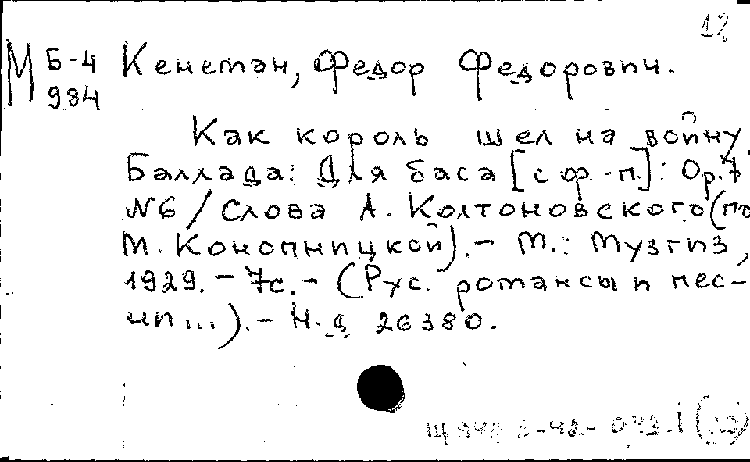 12
М Б-4 Кенеман, Федор Федорович.
984
Как король шел на войну.
Баллада: Для баса [с ф.-п.]: Ор.7
№6 / Слова А. Колтоновского (по
М. Конопницкой). - М.: Музгиз,
1929. - 7с. - (Рус. романсы и пес-
ни...). - Н.д. 26380.